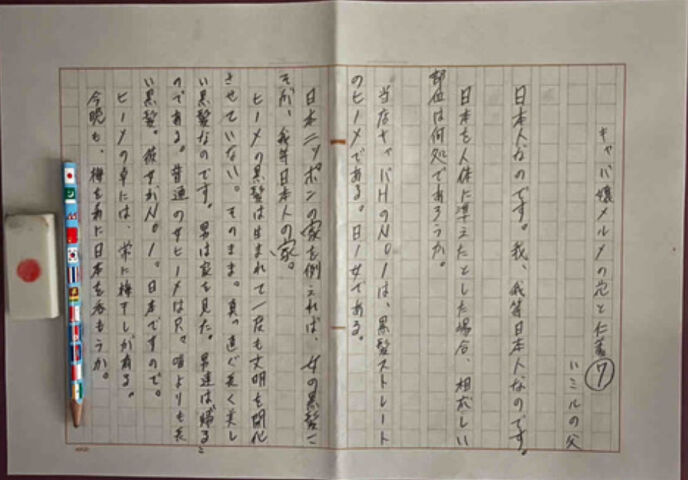 キャバ嬢メルメの恋と仁義⑦
ハミルの父
日本人なのです。我、我等日本人なのです。
日本を人体に準えたとした場合、相応しい
部位は何処であろうか。
当店キャバHのNO1は、黒髪ストレート
のヒーメである。日ノ女である。
日本ニッポンの家を例えれば、女の黒髪こ
そが、我等日本人の家。
ヒーメの黒髪は生まれて一度も文明を開化
させていない。そのまま。真っ直ぐ長く美し
い黒髪なのです。男は家を見た。男達は帰るこ
のである。普通の女ヒーメは
よりも長
い黒髪。彼女がNO1。日本ですので。
ヒーメの卓には、常に梅干しが有る。
今晩も、梅を肴に日本を呑もうか。